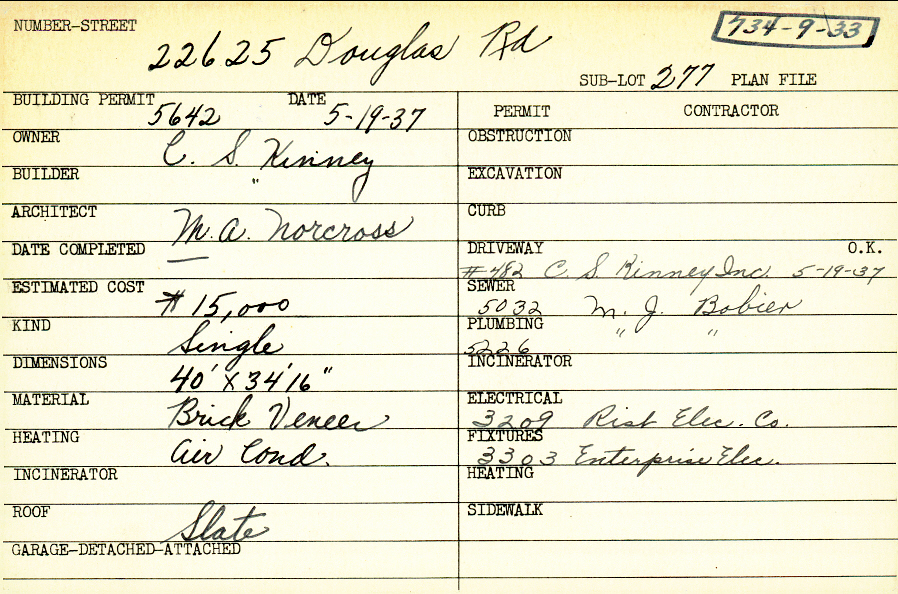 NUMBER-STREET
734-9-33
22625 Douglas Rd
SUB-LOT 277 PLAN FILE
BUILDING PERMIT 5642 DATE 5-19-37
OWNER C. S. Kinney
BUILDER "
ARCHITECT M. A. Norcross
DATE COMPLETED —
ESTIMATED COST # 15,000
KIND Single
DIMENSIONS 40' X 34'16"
MATERIAL Brick Veneer
HEATING Air Cond.
INCINERATOR
ROOF Slate
GARAGE-DETACHED-ATTACHED
PERMIT CONTRACTOR
OBSTRUCTION
EXCAVATION
CURB
DRIVEWAY O.K.
#482 C. S. Kinney Inc. 5-19-37
SEWER
5032 M. J. Bobier
PLUMBING " "
5226
INCINERATOR
ELECTRICAL
3209 Rist Elec. Co.
FIXTURES
3303 Enterprise Elec.
HEATING
SIDEWALK